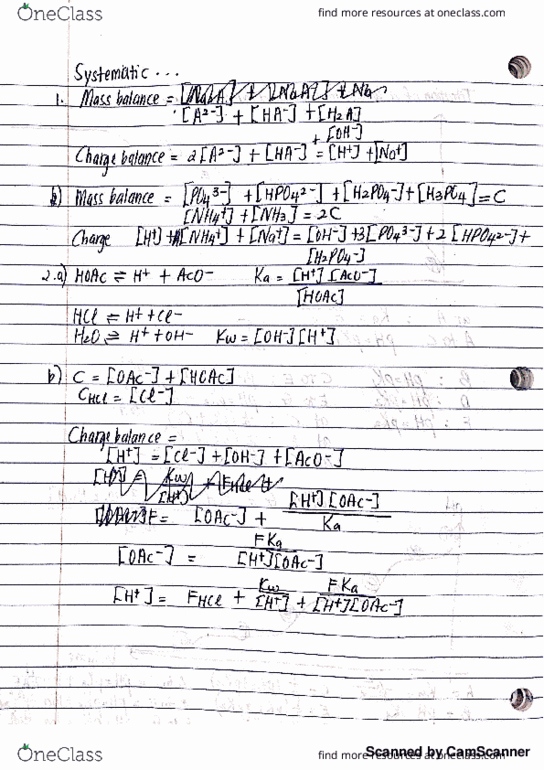 OneClass
find more resources at oneclass.com
Systematic ...
1. Mass balance =
[A²⁻] + [HA⁻] + [H₂A]
+ [OH⁻]
Charge balance = 2[A²⁻] + [HA⁻] = [H⁺] + [Na⁺]
b) Mass balance = [PO₄³⁻] + [HPO₄²⁻] + [H₂PO₄⁻] + [H₃PO₄] = C
[NH₄⁺] + [NH₃] = 2C
Charge [H⁺] + [NH₄⁺] + [Na⁺] = [OH⁻] + 3[PO₄³⁻] + 2[HPO₄²⁻] +
[H₂PO₄⁻]
2.a) HOAc ⇌ H⁺ + AcO⁻ Ka = [H⁺][AcO⁻]
[HOAc]
HCl ⇌ H⁺ + Cl⁻
H₂O ⇌ H⁺ + OH⁻ Kw = [OH⁻][H⁺]
b) C = [OAc⁻] + [HOAc]
C_HCl = [Cl⁻]
Charge balance =
[H⁺] = [Cl⁻] + [OH⁻] + [AcO⁻]
F = [OAc⁻] + [H⁺][OAc⁻]
Ka
[OAc⁻] = FKa
[H⁺][OAc⁻]
[H⁺] = F_HCl + Kw/[H⁺] + FKa/[H⁺][OAc⁻]
OneClass
find more resources at oneclass.com
Scanned by CamScanner